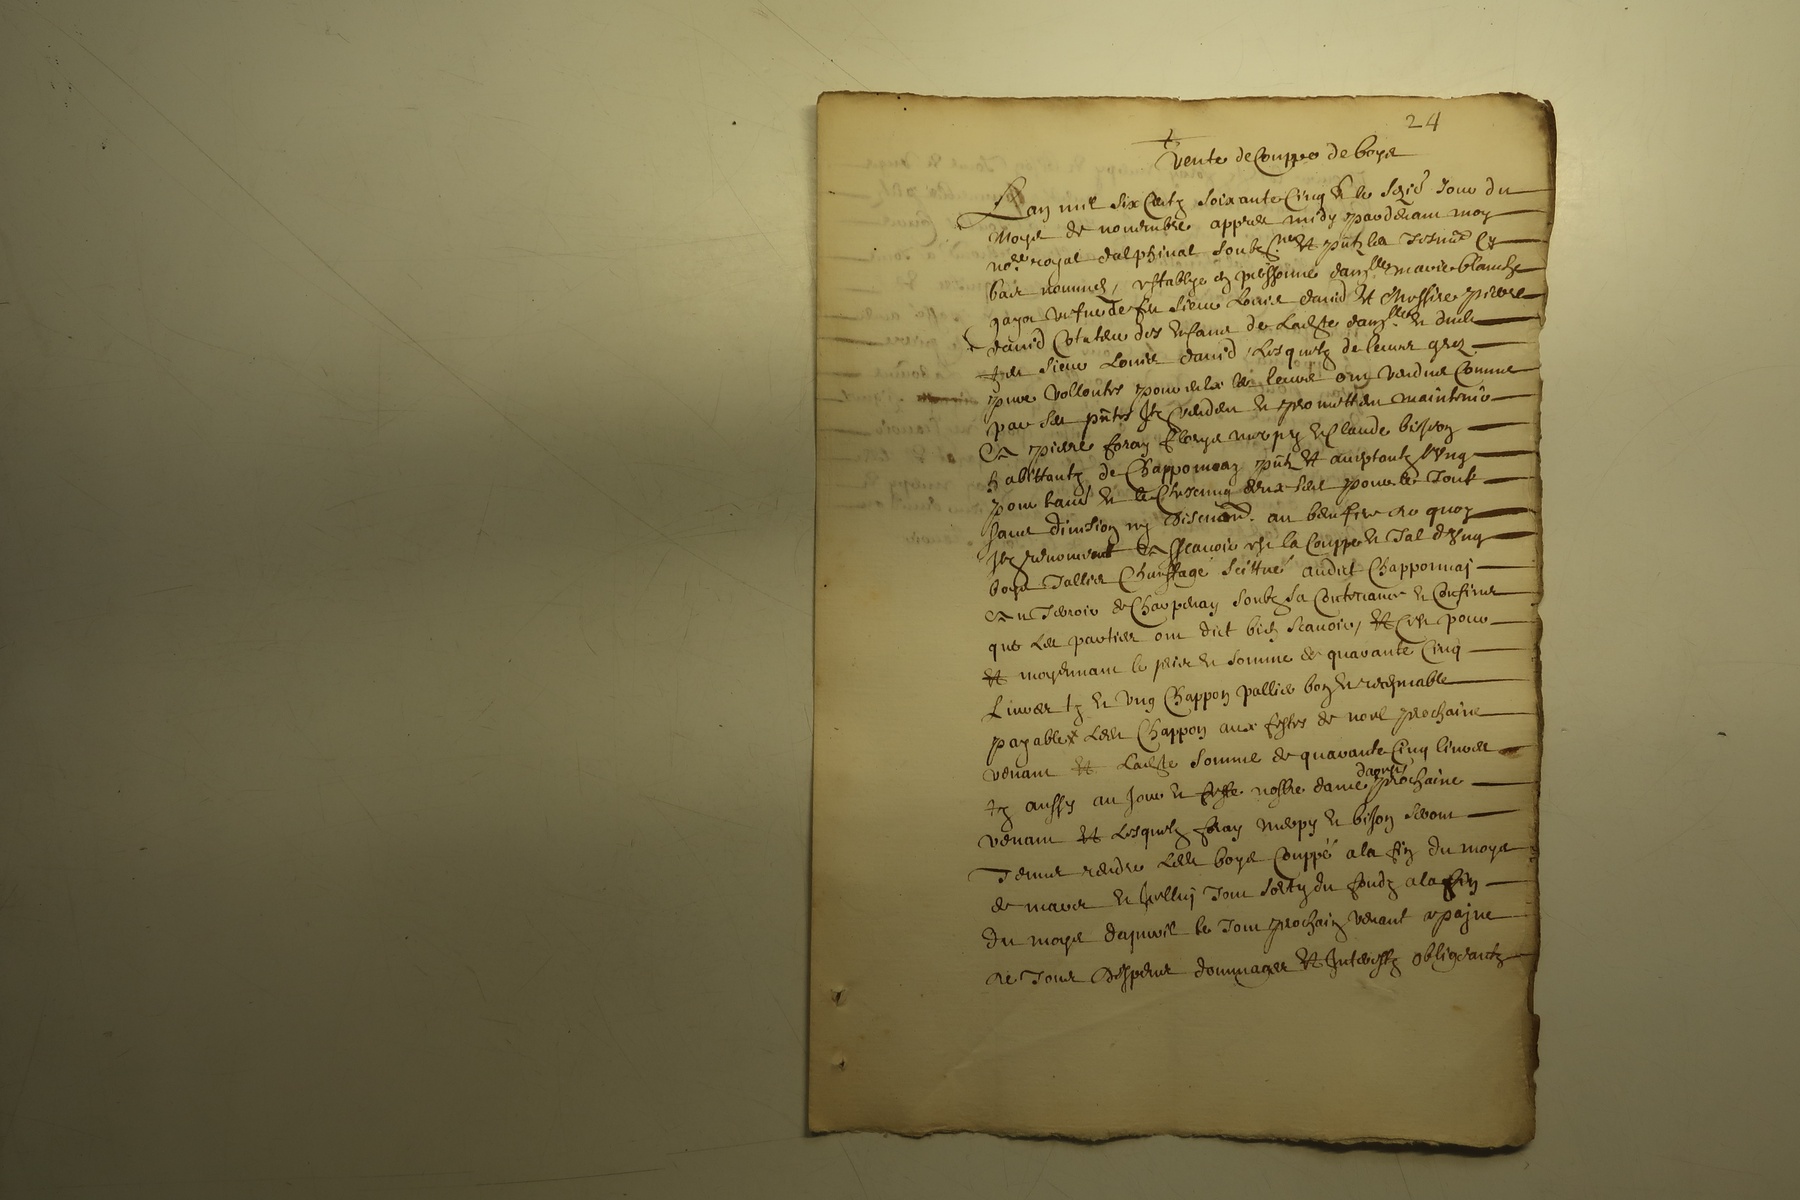 24
Vente de Couppe de boys
Lan mil six Centz soixante Cinq & le jour du
Moys de novembre appres midy pardevant moy
no.re royal dalphinal soubz.ne & pntz les tesmz cy
bas nommez, establye en personne dam.lle marie blanche
vefve de feu sieur Louis david & Messire pierre
david Cotuteur des enfans de ladte dam.lle & dudt
feu sieur Louis david, Lesquelz de leurs grez
pure vollontes pour eulx & les leurs ont vendus Comme
par ses pntes Ilz vendent & promettent maintenir
A pierre foray & Claude bisson
habittantz de Chapponnay pntz & acceptantz l'Ung
pour lautre & le Chescung deux seul pour le Tout
sans division ny discution. au beneffice de quoy
Ilz renoncent A Sscavoir est la Couppe & Tal d'Ung
boys Tallis Chauffage scittué audit Chapponnaj
Au Terroir de soubz sa Contenance & Confins
que Les parties ont dict bien scavoir, & C'est pour
& moyennant le prix & somme de quarante Cinq
Livres tz & Ung Chappon pallier bon & recepvable
payable Ledt Chappon aux festes de noel prochaine
venant & Ladte somme de quarante Cinq livres
tz aussy au Jour & feste nostre dame
daoust
prochaine
venant & Lesquelz foray & bisson seront
Tenus rendre Ledt boys Couppé a la fin du moys
de mars & Icelluy Tout sorty du fondz a la fin
du moys dapvril le Tout prochain venant a pajne
de Tous despens dommages & Interestz obligeantz